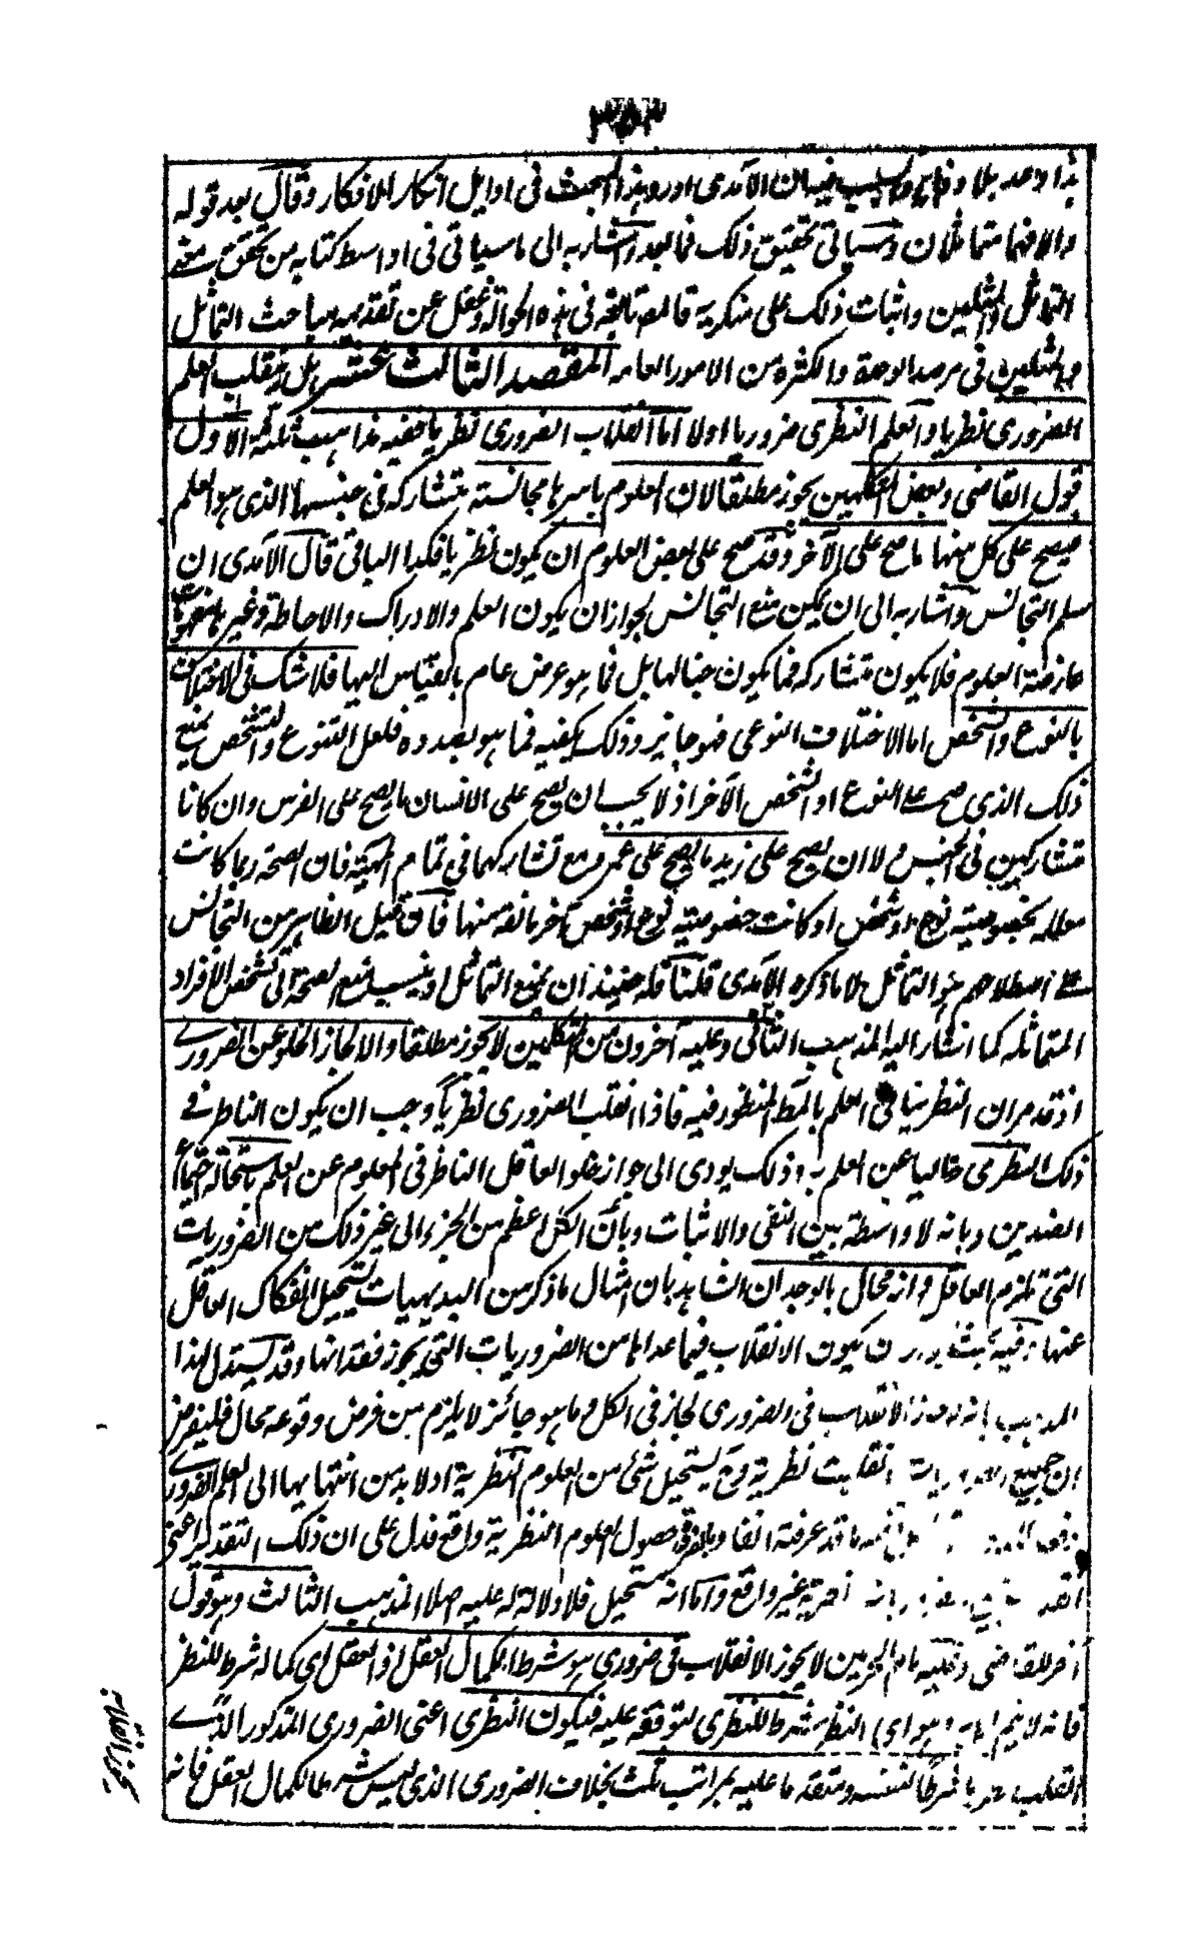 ٣٥٣
هذا وعد بلا وفاء والسبب فيه ان الآمدي اورد هذا البحث في اوايل ابكار الافكار وقال بعد قوله
والا فهما متماثلان وسياتي تحقيق ذلك فيما بعد واشار به الى ما سياتي في اواسط كتابه من تحقق معنى
التماثل والمثلين واثبات ذلك على منكريه فالمص تابعه في هذه الحوالة وغفل عن تقديمه مباحث التماثل
والمثلين في مرصد الوحدة والكثرة من الامور العامه المقصد الثالث عشر هل ينقلب العلم
الضروري نظريا والعلم النظري ضروريا اولا اما انقلاب الضروري نظريا ففيه مذاهب ثلثة الاول
قول القاضي وبعض المتكلمين يجوز مطلقا لان العلوم باسرها مجانسة متشاركة في جنسها الذي هو العلم
فيصح على كل منها ما صح على الآخر وقد صح على بعض العلوم ان يكون نظريا فكذا الباقي قال الآمدي ان
سلم التجانس واشار به الى ان يمكن منع التجانس لجواز ان يكون العلم والادراك والاحاطة وغيرها مفهومات
عارضة للعلوم فلا يكون متشاركه فيما يكون جنسا لها بل فيما هو عرض عام بالقياس اليها فلا شك في الاختلاف
بالنوع والشخص اما الاختلاف النوعي فهو جايز وذلك يكفيه فيما هو بصدده فلعل التنوع والتشخص يمنع
ذلك الذي صح على النوع او الشخص الآخر اذ لا يجب ان يصح على الانسان ما يصح على الفرس وان كانا
متشاركين في الجنس ولا ان يصح على زيد ما يصح على عمرو مع تشاركهما في تمام المهية فان الصحة ربما كانت
معللة بخصوصية نوع او شخص او كانت خصوصية نوع او شخص آخر مانعة منها فان قيل الظاهر من التجانس
على اصطلاحهم هو التماثل لا ما ذكره الآمدي قلنا فله حينئذ ان يمنع التماثل او يسند منع الصحة الى تشخص الافراد
المتماثلة كما اشار اليه المذهب الثاني وعليه آخرون من المتكلمين لا يجوز مطلقا والا لجاز الخلو عن الضروري
اذ قد مر ان النظر ينافي العلم بالمنظور فيه فاذا انقلب الضروري نظريا وجب ان يكون الناظر في
ذلك النظري خاليا عن العلم به وذلك يودي الى جواز خلو العاقل الناظر في العلوم عن العلم باستحالة اجتماع
الضدين وبانه لا واسطة بين النفي والاثبات وبان الكل اعظم من الجزء الى غير ذلك من الضروريات
التي تلزم العاقل وانه محال بالوجدان الشاهد بان امثال ما ذكر من البديهيات يستحيل انفكاك العاقل
عنها وفيه بحث ان يكون الانقلاب فيما عداها من الضروريات التي يجوز فقدانها وقد يستدل لهذا
المذهب بانه لو جاز الانقلاب في الضروري لجاز في الكل وما هو جائز لا يلزم من فرض وقوعه محال فليفرض
ان جميع الضروريات انقلبت نظرية وح يستحيل شئ من العلوم النظرية اذ لا بد من انتهائها الى العلم الضروري
ما قد عرفته آنفا وبالفرق حصول العلوم النظرية واقع فدل على ان ذلك التقدير اعني
نظرية غير واقع واما انه مستحيل فلا دلالة له عليه اصلا المذهب الثالث وهو قول
آخر للقاضي وعليه امام الحرمين لا يجوز الانقلاب في ضروري هو شرط لكمال العقل اذ العقل اي كماله شرط للنظر
فانه لا يتم الا به وهو اي النظر شرط للنظري لتوقفه عليه فيكون النظري اعني الضروري المذكور الذي
انقلب نظريا شرطا لنفسه ومتقدما عليه بمراتب ثلث بخلاف الضروري الذي ليس شرطا لكمال العقل فانه